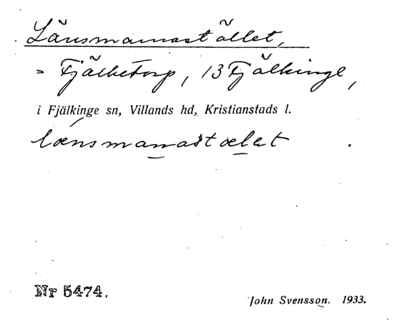 Länsmannastället,
= Fjälketorp, 13 Fjälkinge,
i Fjälkinge sn, Villands hd, Kristianstads l.
lænsmanastælet.
Nr 5474.
John Svensson. 1933.